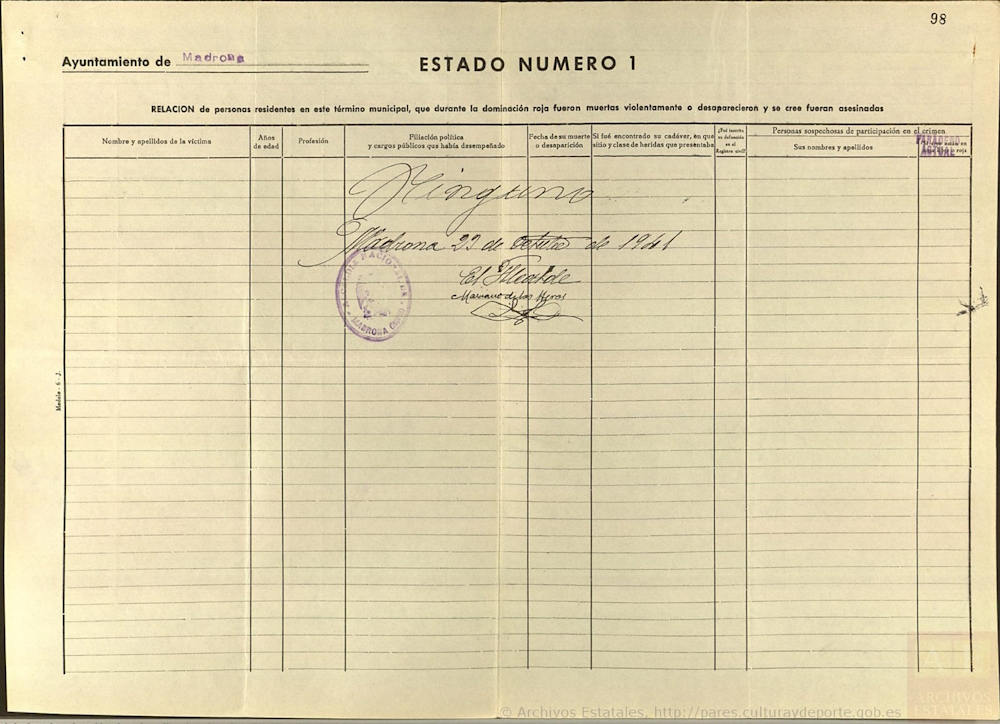 98
Ayuntamiento de Madrona
ESTADO NUMERO 1
RELACION de personas residentes en este término municipal, que durante la dominación roja fueron muertas violentamente o desaparecieron y se cree fueran asesinadas
Nombre y apellidos de la víctima
Años
de edad
Profesión
Filiación política
y cargos públicos que había desempeñado
Fecha de su muerte
o desaparición
Si fué encontrado su cadáver, en que
sitio y clase de heridas que presentaba
¿Fué inscrita
su defunción
en el
Registro civil?
Personas sospechosas de participación en el crimen
Sus nombres y apellidos
PARADERO
ACTUAL
Ninguno
Madrona 22 de Octubre de 1941
El Alcalde
Mariano de las Heras
MADRONA
Modelo - 6 - J.
ARCHIVOS
ESTATALES
© Archivos Estatales, http://pares.culturaydeporte.gob.es